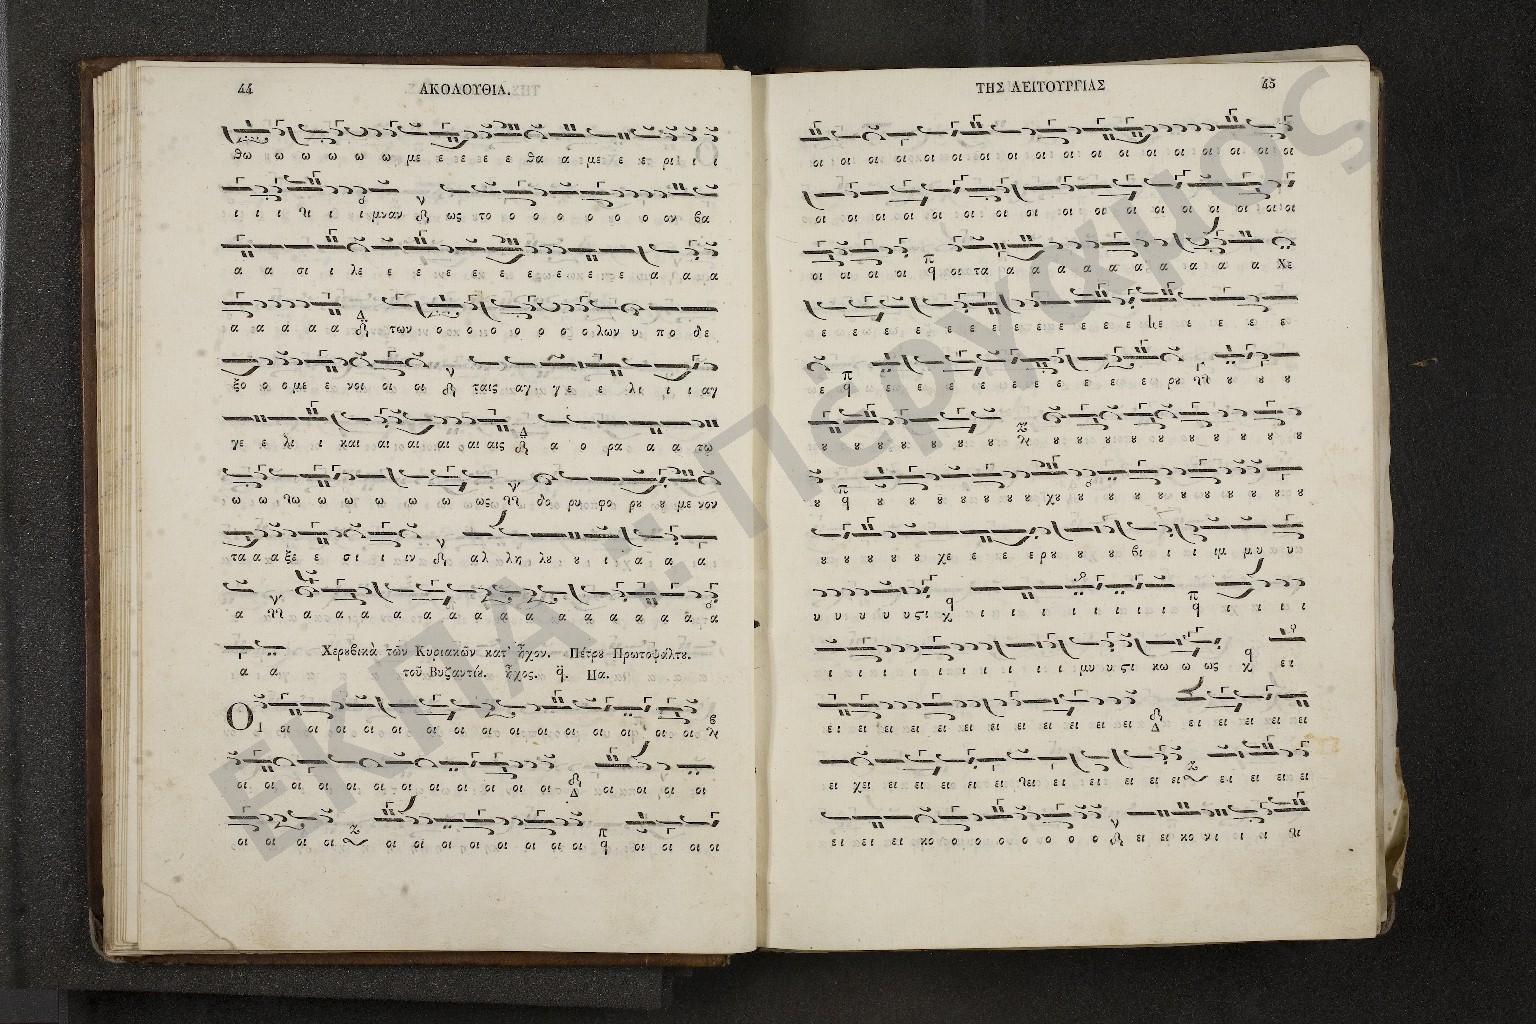 44 ΑΚΟΛΟΥΘΙΑ.
θω ω ω ω ω ω με ε ε ε ε ε θα α με ε ε ρι ι ι
μναν ως το ο ο ο ο ο ο ον βα
α α σι ι λε ε ε ε ε ε ε ε ε ε α α α
α α α α α των ο ο ο ο ο ο ο λων υ πο δε
ξο ο ο με ε νοι οι οι ταις αγ γε ε λι ι ι αγ
γε ε λι ι και αι αι αι αι αι αις α ο ρα α α τω
ω ω ω ω ω ω ω ω ως δο ρυ φο ρȣ ȣ με νον
τα α α ξε ε σι ι ιν αλ λη λȣ ȣ ι α α α
α α α α α α α α α α α α α α α α
α α
Χερȣβικὰ τῶν Κυριακῶν κατ' ἦχον. Πέτρȣ Πρωτοψάλτȣ.
τοῦ Βυζαντίȣ. ἦχος. Πα.
Οι οι οι οι οι οι οι οι οι οι οι οι οι οι οι οι
οι οι οι οι οι οι οι οι οι οι οι οι οι οι οι οι
οι οι οι οι οι οι οι οι οι οι οι οι οι οι οι οι
ΤΗΣ ΛΕΙΤΟΥΡΓΙΑΣ 45
οι οι οι οι οι οι οι οι οι οι οι οι οι οι οι οι οι οι
οι οι οι οι οι οι οι οι οι οι οι οι οι οι οι οι οι οι
οι οι οι οι οι τα α α α α α α α α α α Χε
ε ε ε ε ε ε ε ε ε ε ε ε ε ε ε ε ε
ε ε ε ε ε ε ε ε ε ε ε ρȣ ȣ ȣ ȣ
ȣ ȣ ȣ ȣ ȣ ȣ ȣ ȣ ȣ ȣ ȣ ȣ ȣ ȣ ȣ ȣ
ȣ ȣ ȣ ȣ ȣ ȣ ȣ ȣ χȣ ȣ ȣ ȣ ȣ ȣ ȣ ȣ ȣ
ȣ ȣ ȣ ȣ ȣ χε ε ε ε ρȣ ȣ ȣ ȣ βι ι ι ιμ μυ υ υ
υ υ υ υ υ ςι ι ι ι ι ι ι ι ι ι ι ι
ι ι ι ι ι ι ι ι ι μυ υ ςι κω ω ως ει
ει ει ει ει ει ει ει ει ει ει ει ει ει ει ει ει ει
ει χει ει ει ει ει ει ει ει ει ει ει ει ει ει ει
ει ει ει κο ο ο ο ο ο ο ο ει ει κο νι ι ι
ΕΚΠΑ: Πέργαμος